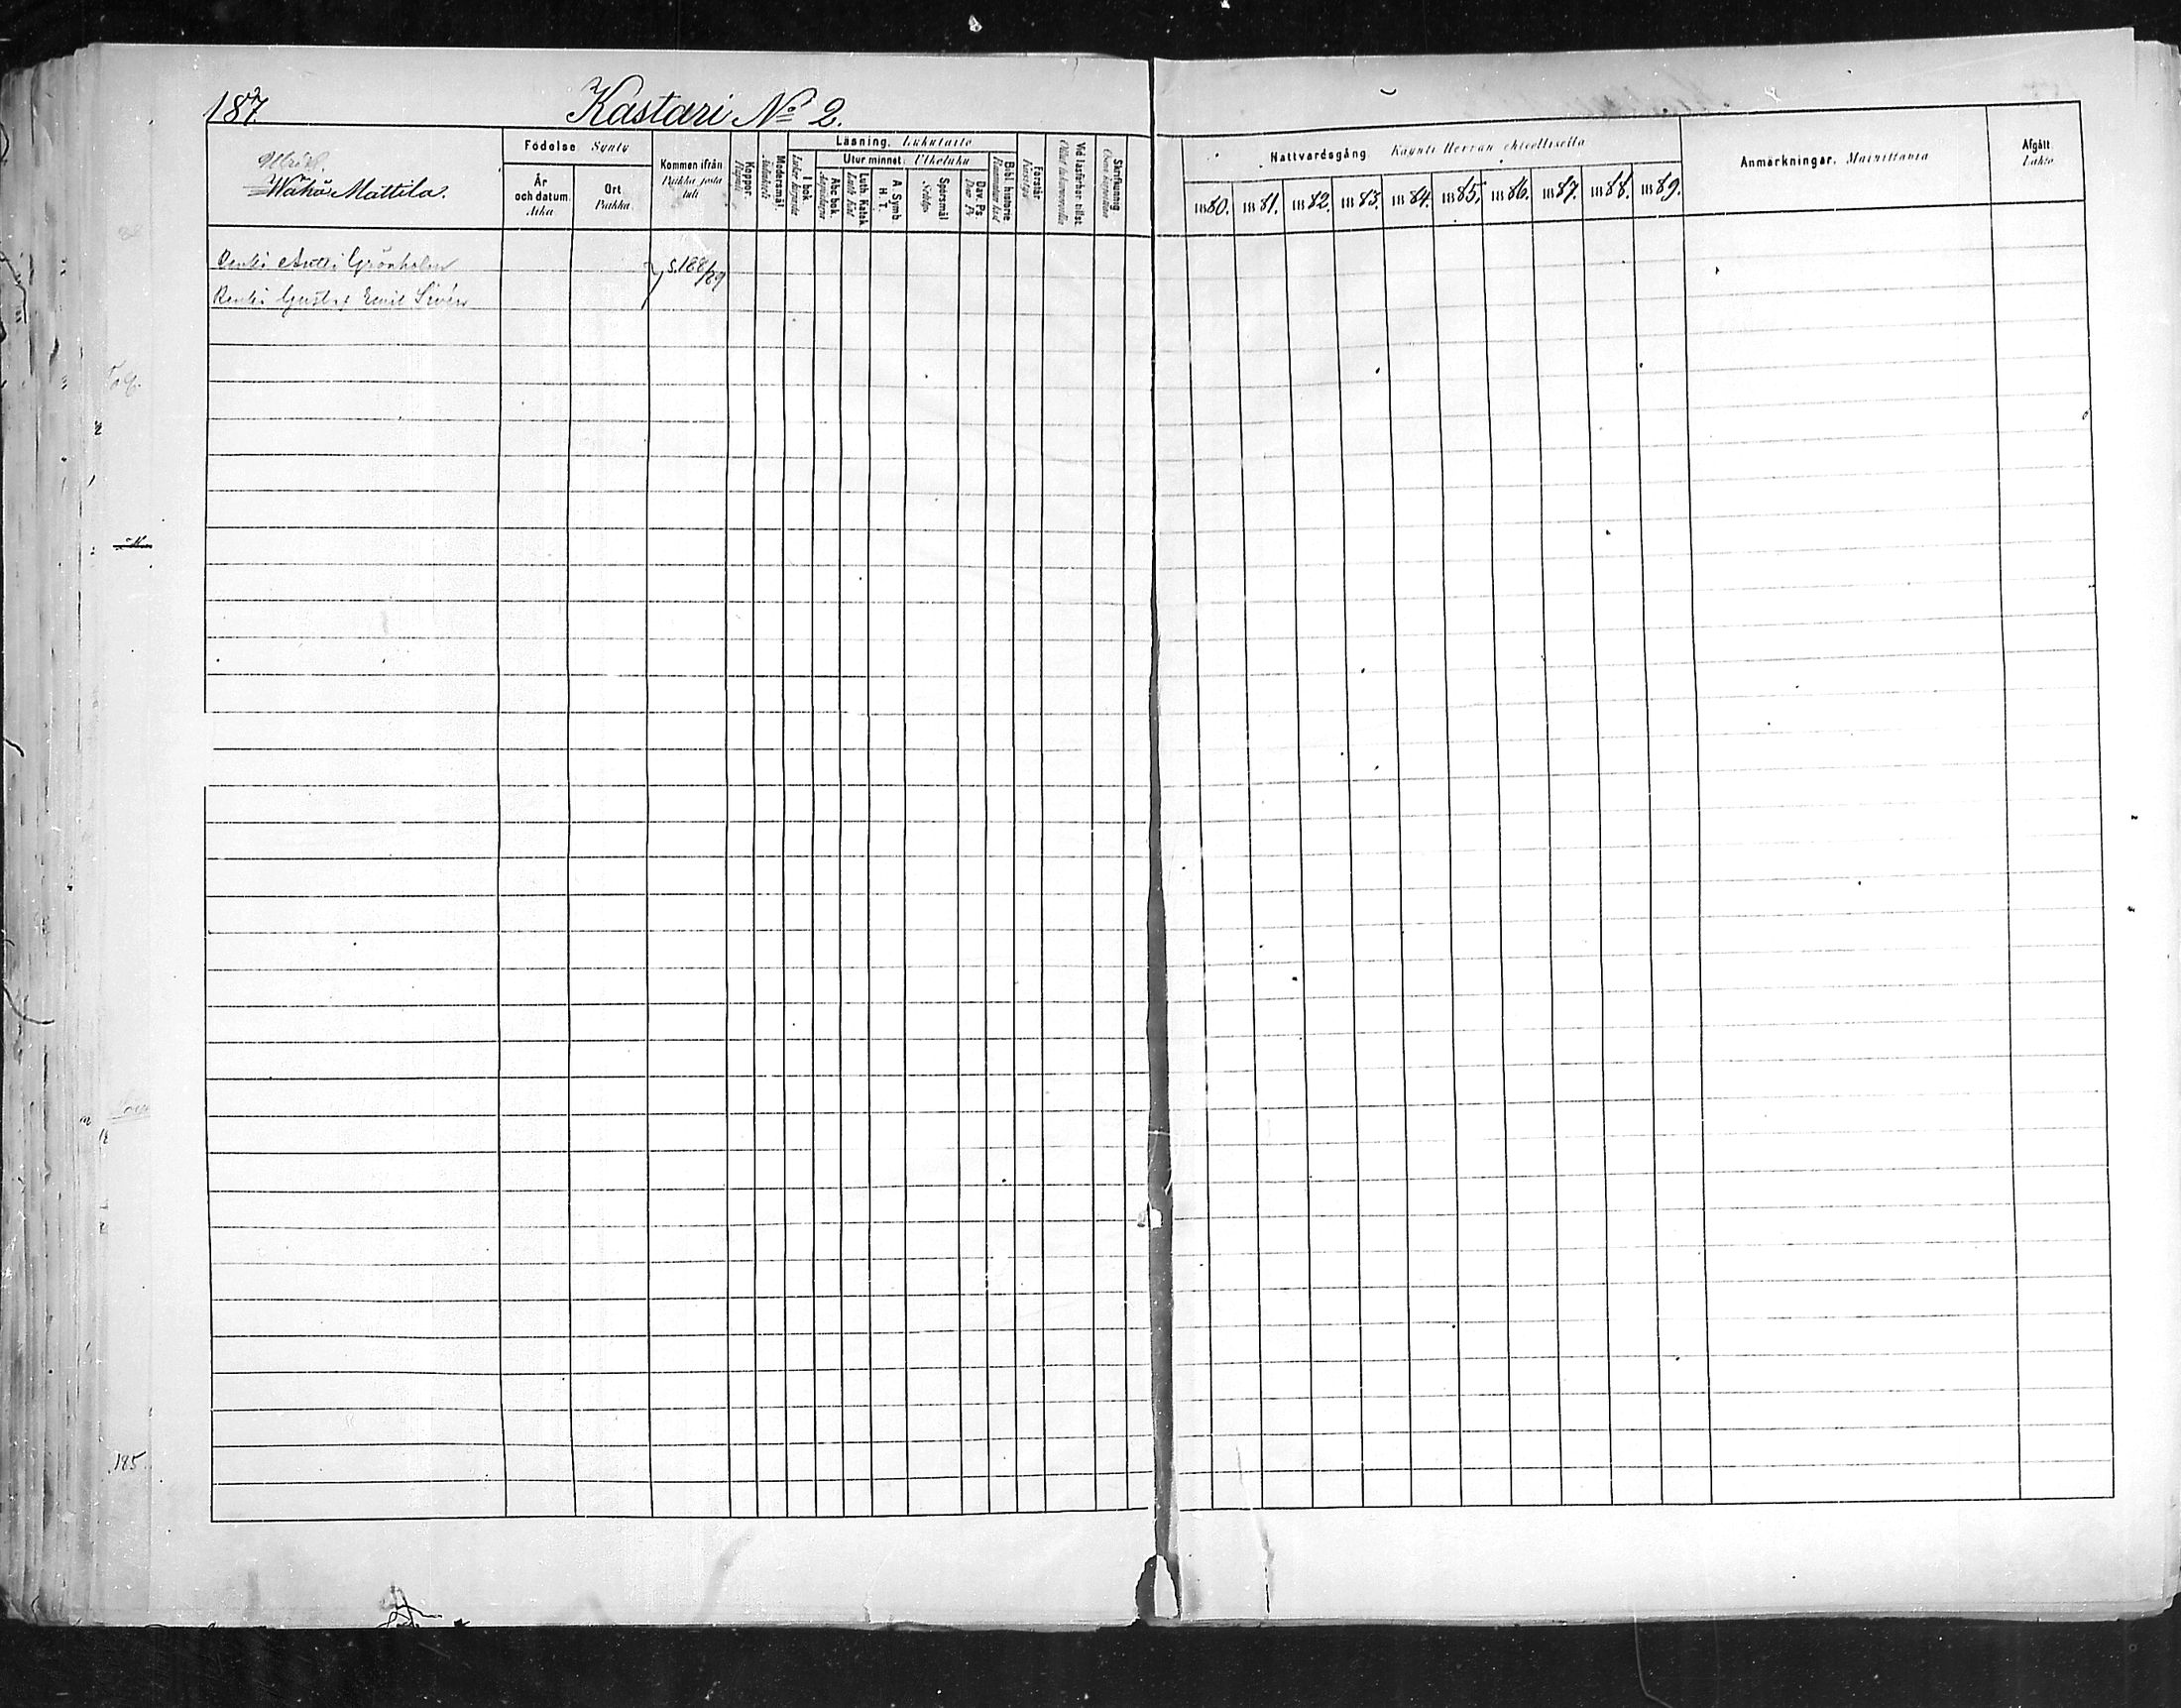 187.
Kastari No 2.
Wähä Mattila.
Födelse Synty
År och datum. Aika
Ort Paikka
Kommen ifrån Paikka josta tuli
Koppor. Rupuli
Modersmål. Äidinkieli
Läsning. Lukutaito
I bok.
Utur minnet. Ulkoluku
Abc bok.
Luth. Katek.
A. Symb. H. T.
Spörsmål
Dav. Ps.
Bibl. historie
Förstår
Vid läsförhör tillst.
Skrifkunnig
Nattvardsgång. Käynti Herran ehtoollisella
1880. 1881. 1882. 1883. 1884. 1885. 1886. 1887. 1888. 1889.
Anmärkningar. Muistutuksia
Afgått. Lähtö
Renki Antti Grönholm
Renki Gustaf Emil Sivén
s. 188/89
185